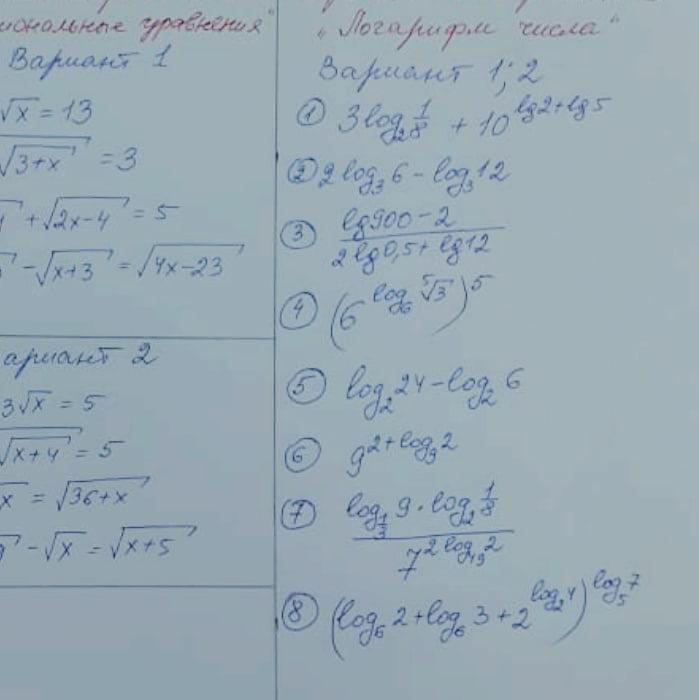 иональные уравнения"
Вариант 1
√x = 13
√(3+x) = 3
+√(2x-4) = 5
-√(x+3) = √(4x-23)
ариант 2
3√x = 5
√(x+4) = 5
x = √(36+x)
-√x = √(x+5)
„Логарифм числа"
Вариант 1; 2
① 3log₂ 1/8 + 10^(lg2+lg5)
② 2log₃6 - log₃12
③ (lg900-2)/(2lg0,5+lg12)
④ (6^(log₆ ⁵√3))^5
⑤ log₂24 - log₂6
⑥ 9^(2+log₉2)
⑦ (log_(1/3) 9 · log₂ 1/8)/(7^(2log₄₉2))
⑧ (log₆2 + log₆3 + 2^(log₂4))^(log₅7)